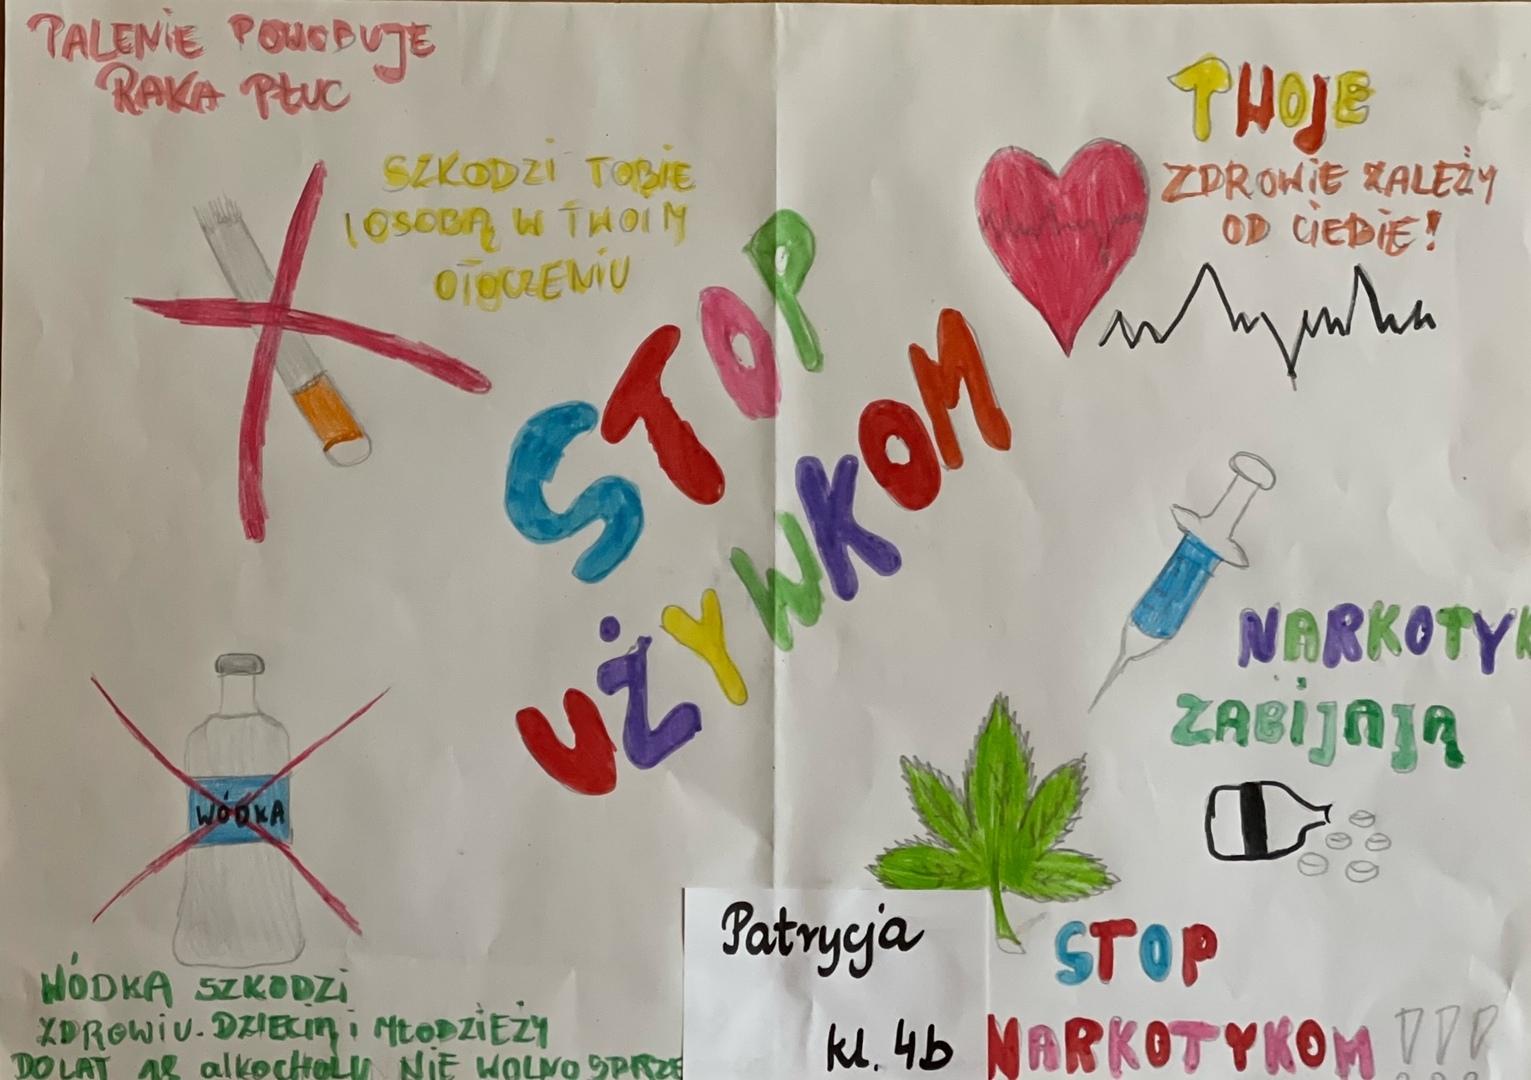 PALENIE POWODUJE
RAKA PŁUC
SZKODZI TOBIE
I OSOBĄ W TWOIM
OTOCZENIU
STOP
UŻYWKOM
TWOJE
ZDROWIE ZALEŻY
OD CIEBIE!
NARKOTYK
ZABIJAJĄ
WÓDKA
WÓDKA SZKODZI
ZDROWIU. DZIECIĄ i MŁODZIEŻY
DO LAT 18 alkocHolu NIE WOLNO SPRZE
STOP
NARKOTYKOM !!!
Patrycja
kl. 4b